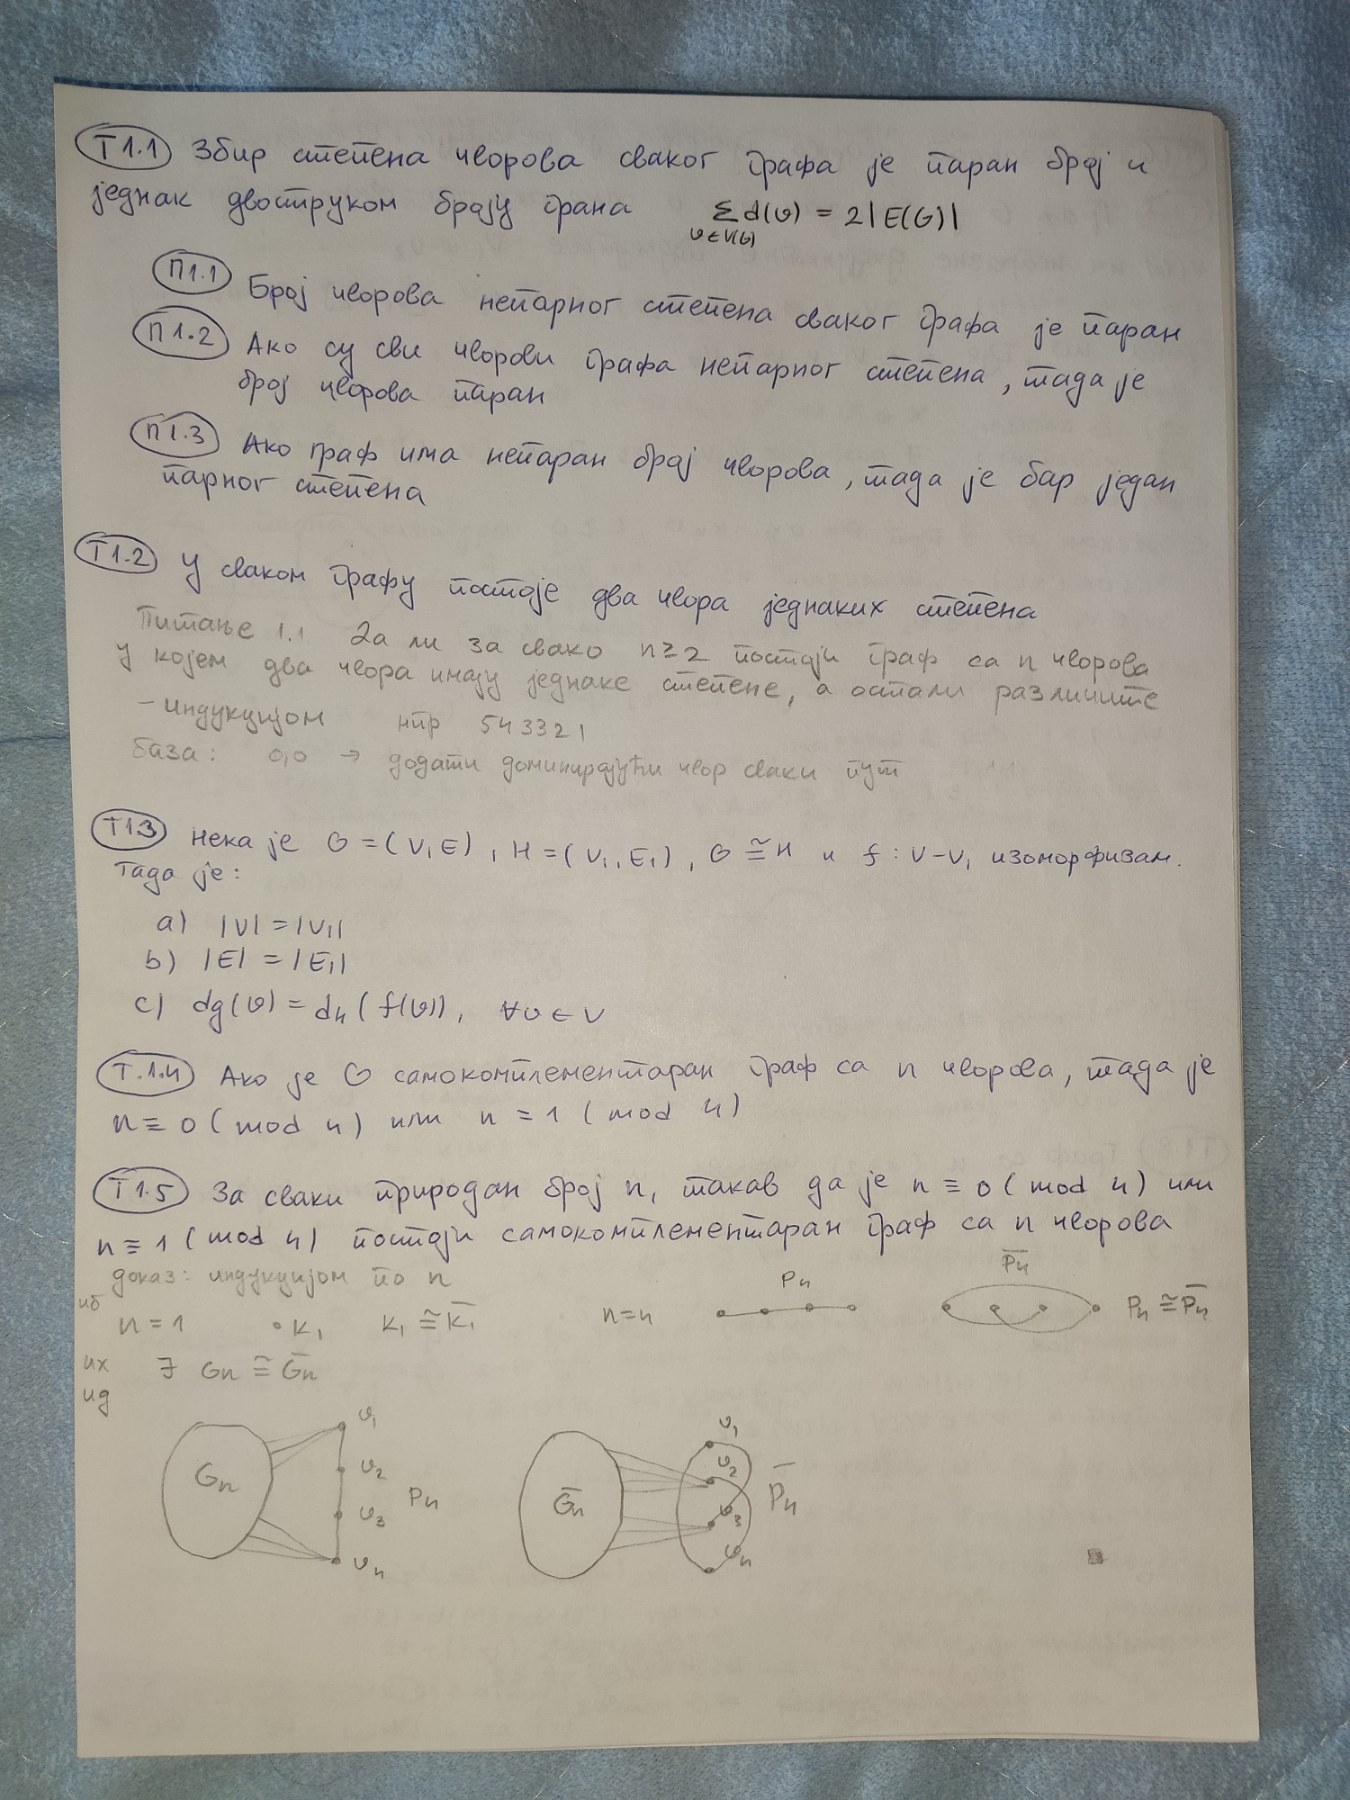 Т1.1 Збир степена чворова сваког графа је паран број и
једнак двоструком броју грана Σ d(v) = 2|E(G)|
v∈V(G)
П1.1 Број чворова непарног степена сваког графа је паран
П1.2 Ако су сви чворови графа непарног степена, тада је
број чворова паран
П1.3 Ако граф има непаран број чворова, тада је бар један
парног степена
Т1.2 У сваком графу постоје два чвора једнаких степена
Питање 1.1 Да ли за свако n≥2 постоји граф са n чворова
у којем два чвора имају једнаке степене, а остали различите
- индукцијом нпр 543321
база: 0,0 → додати доминирајући чвор сваки пут
Т1.3 Нека је G=(V,E), H=(V₁,E₁), G≅H и f:V-V₁ изоморфизам.
Тада је:
a) |V|=|V₁|
b) |E|=|E₁|
c) dg(v)=dн(f(v)), ∀v∈V
Т.1.4 Ако је G самокомплементаран граф са n чворова, тада је
n≡0(mod 4) или n=1(mod 4)
Т1.5 За сваки природан број n, такав да је n≡0(mod 4) или
n≡1(mod 4) постоји самокомплементаран граф са n чворова
доказ: индукцијом по n
иб n=1 •K₁ K₁≅K̅₁ n=4 P₄ P̅₄ P₄≅P̅₄
их ∃ Gn≅G̅n
ид
Gn v₁ v₂ v₃ v₄ P₄ G̅n v₁ v₂ v₃ v₄ P̅₄